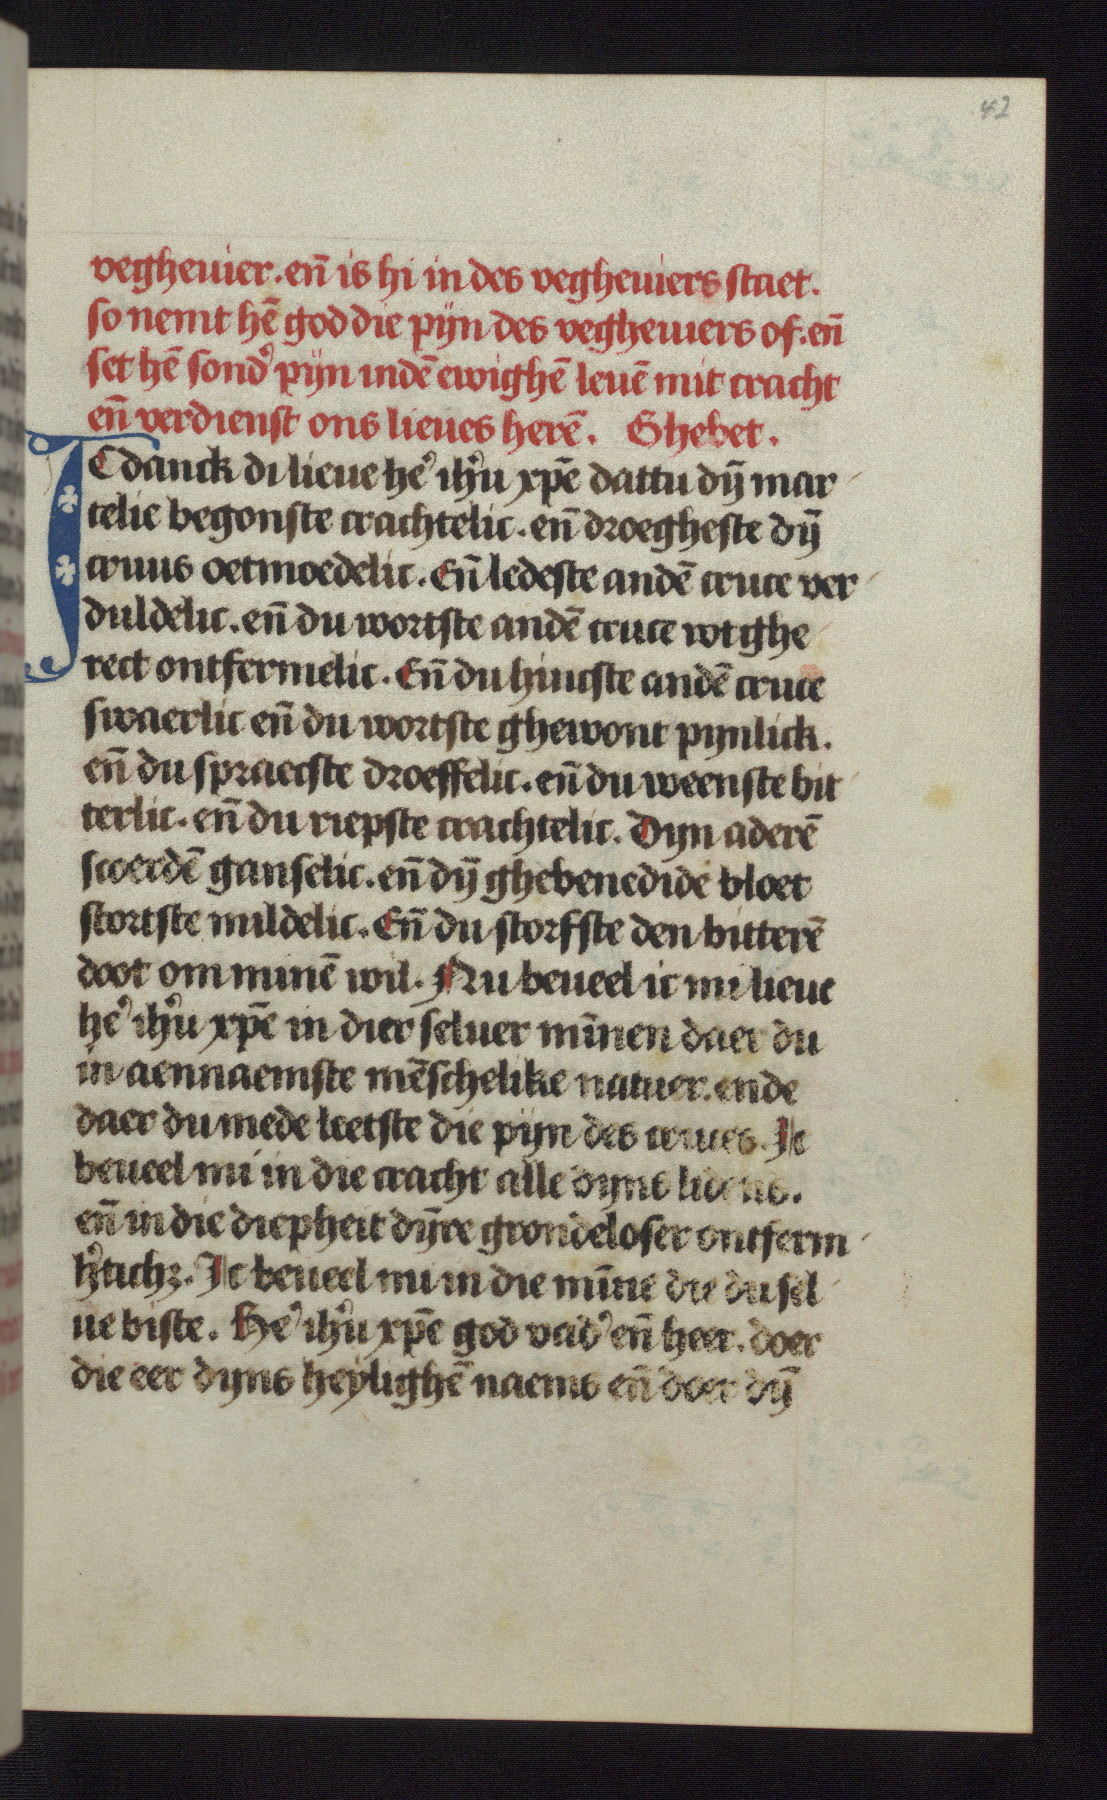 42
vegheuier. en̄ is hi in des vegheuiers staet.
so nemt hē god die pijn des vegheuiers of. en̄
set hē sond̾ pijn indē ewighē leuē mit cracht
en̄ verdienst ons lieues herē. Ghebet.
IC danck di lieue he̾ ih̾u xp̄e dattu dȳ mar
telie begonste crachtelic. en̄ droegheste dȳ
cruus oetmoedelic. En̄ ledeste andē cruce ver
duldelic. en̄ du wortste andē cruce wtghe
rect ontfermelic. En̄ du hincste andē cruce
swaerlic en̄ du wortste ghewont pynlick.
en̄ du spraecste droeffelic. en̄ du weenste bit
terlic. en̄ du riepste crachtelic. Dyn aderē
scoerdē ganselic. en̄ dȳ ghebenedide bloet
stortste mildelic. En̄ du storfste den bitterē
doot om minē wil. Nu beueel ic mi lieue
he̾ ih̾u xp̄e in dier seluer mīnen daer du
in aennaemste mēschelike natuer. ende
daer du mede leetste die pijn des cruces. Ic
beueel mi in die cracht alle dyns lidens.
en̄ in die diepheit dȳre grondeloser ontferm
h̾ticħz. Ic beueel mi in die mīne die du sel
ue biste. He̾ ih̾u xp̄e god vad̾ en̄ heer. doer
die eer dyns heylighē naems en̄ doer dȳ